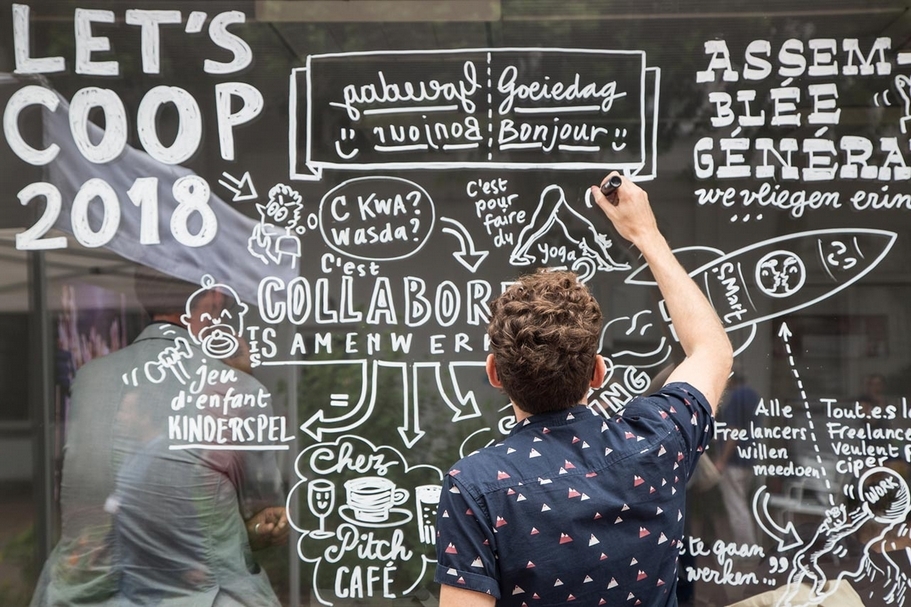 LET'S
COOP
2018
Goeiedag Goeiedag
Bonjour Bonjour
ASSEM-
BLÉE
GÉNÉRA
we vliegen erin
...
C KWA?
wasda?
C'est
pour
faire
du
yoga
C'est
COLLABOR
IS SAMENWERK
TIS
jeu
d'enfant
KINDERSPEL
=
Chez
Pitch
CAFÉ
SMart
ING
Alle
Freelancers
willen
meedoen
Tout.es l
Freelance
Veulent p
ciper
WORK
te gaan
werken..."